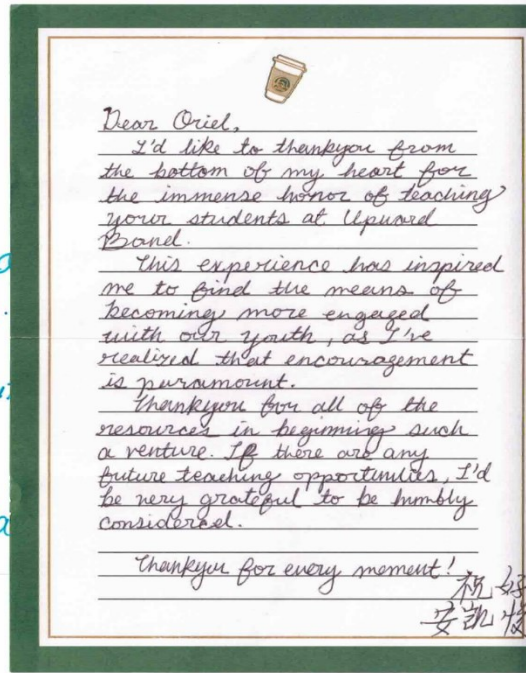 Dear Oriel,
I'd like to thankyou from
the bottom of my heart for
the immense honor of teaching
your students at Upward
Bound.
This experience has inspired
me to find the means of
becoming more engaged
with our youth, as I've
realized that encouragement
is paramount.
Thankyou for all of the
resources in beginning such
a venture. If there are any
future teaching opportunities, I'd
be very grateful to be humbly
considered.
Thankyou for every moment!
祝好
安凯